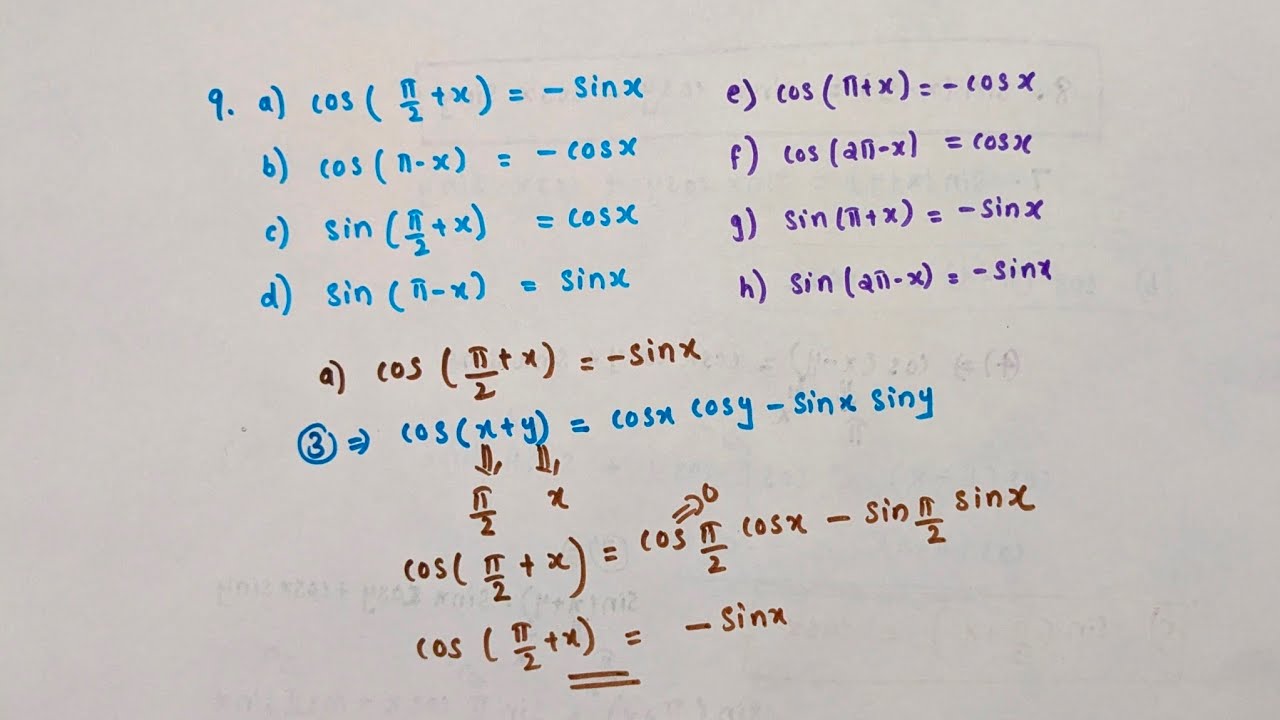 9. a) cos(π/2+x) = -sinx
b) cos(π-x) = -cosx
c) sin(π/2+x) = cosx
d) sin(π-x) = sinx
e) cos(π+x) = -cosx
f) cos(2π-x) = cosx
g) sin(π+x) = -sinx
h) sin(2π-x) = -sinx
a) cos(π/2+x) = -sinx
③ ⇒ cos(x+y) = cosx cosy - sinx siny
⇓, ⇓,
π/2 x
⇒ 0
cos(π/2+x) = cos π/2 cosx - sin π/2 sinx
cos(π/2+x) = -sinx